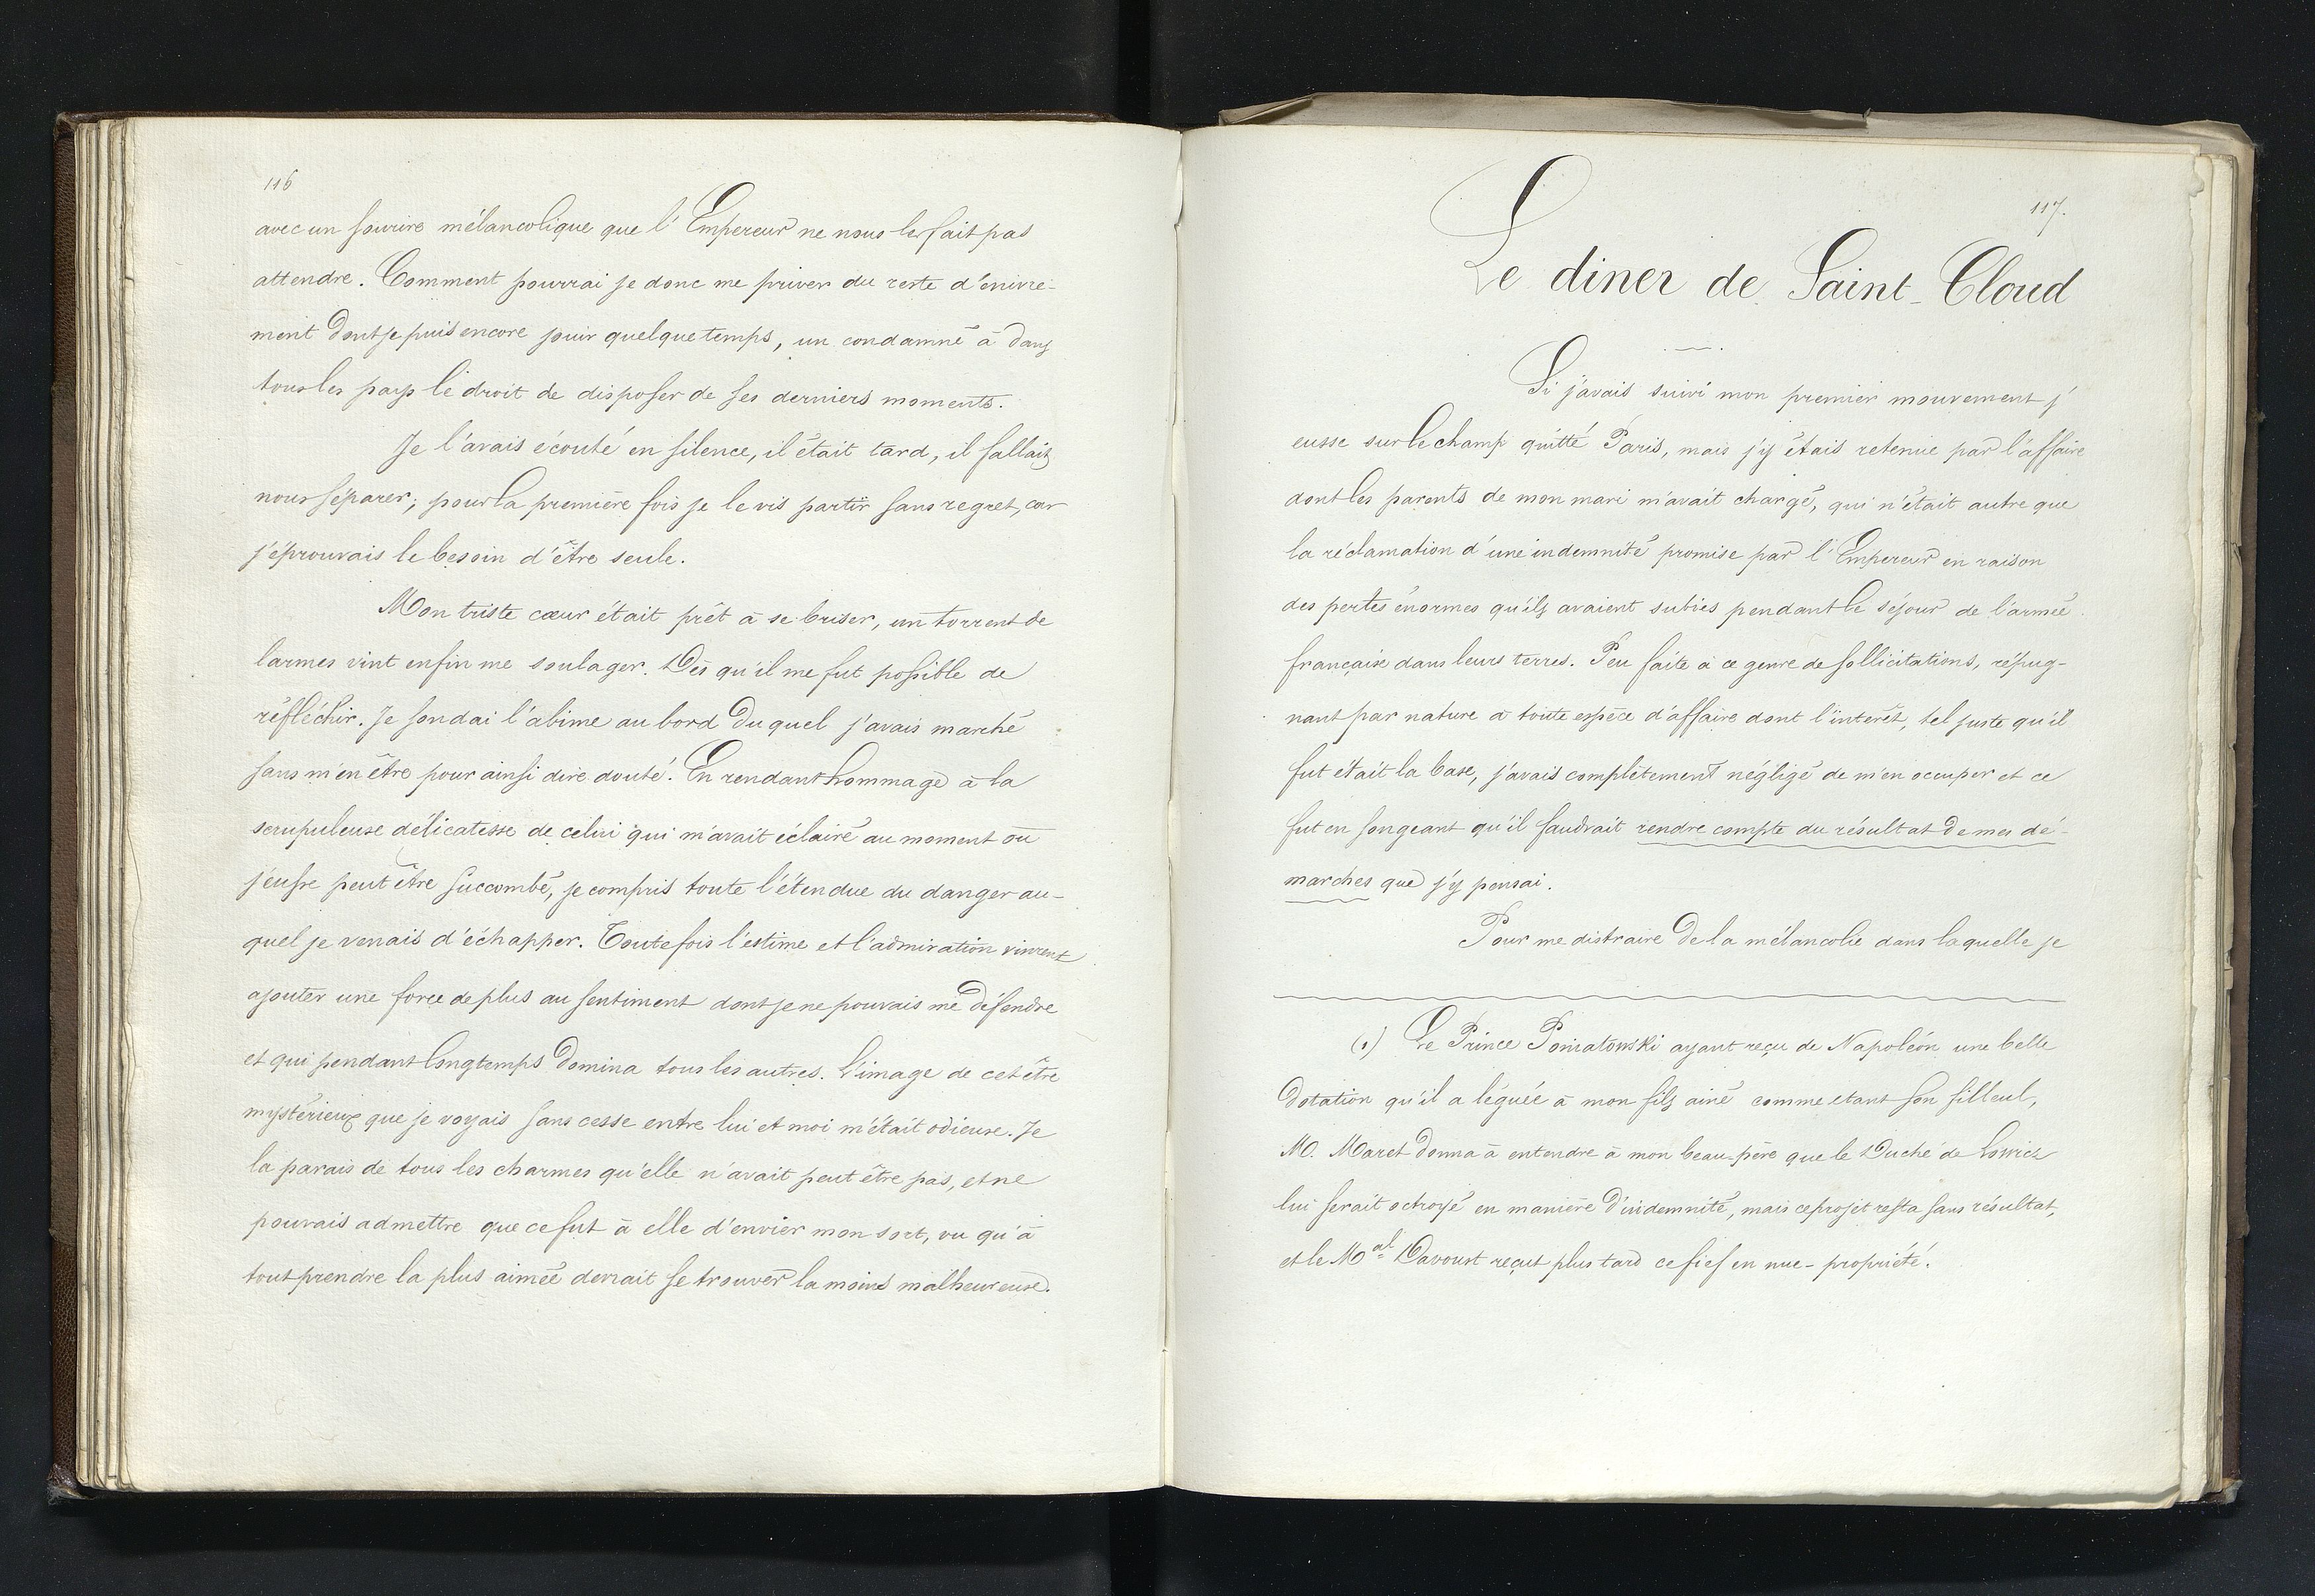 116
avec un sourire mélancolique que l'Empereur ne nous les fait pas
attendre. Comment pourrai je donc me priver du reste d'enivre-
ment dont je puis encore jouir quelque temps, un condamné à dans
tous les pays le droit de disposer de ses derniers moments.
Je l'avais écouté en silence, il était tard, il fallait
nous séparer; pour la première fois je le vis partir sans regret, car
j'éprouvais le besoin d'être seule.
Mon triste cœur était prêt à se briser, un torrent de
larmes vint enfin me soulager. Dès qu'il me fut possible de
réfléchir. Je sondai l'abime au bord du quel j'avais marché
sans m'en être pour ainsi dire douté. En rendant hommage à la
scrupuleuse délicatesse de celui qui m'avait éclairé au moment où
j'eusse peut être succombé, je compris toute l'étendue du danger au-
quel je venais d'échapper. Toutefois l'estime et l'admiration vinrent
ajouter une force de plus au sentiment dont je ne pouvais me défendre
et qui pendant longtemps domina tous les autres. L'image de cet être
mystérieux que je voyais sans cesse entre lui et moi m'était odieuse. Je
la parais de tous les charmes qu'elle n'avait peut être pas, et ne
pouvais admettre que ce fut à elle d'envier mon sort, vu qu'à
tout prendre la plus aimée devrait se trouver la moins malheureuse.
117.
Le diner de Saint-Cloud
Si j'avais suivi mon premier mouvement j'
eusse sur le champ quitté Paris, mais j'y étais retenue par l'affaire
dont les parents de mon mari m'avait chargé, qui n'était autre que
la réclamation d'une indemnité promise par l'Empereur en raison
des pertes énormes qu'ils avaient subies pendant le séjour de l'armée
française dans leurs terres. Peu faite à ce genre de sollicitations, répug-
nant par nature à toute espèce d'affaire dont l'interêt, tel juste qu'il
fut était la base, j'avais complètement négligé de m'en occuper et ce
fut en songeant qu'il faudrait rendre compte du résultat de mes dé-
marches que j'y pensai.
Pour me distraire de la mélancolie dans laquelle je
(1) Le Prince Poniatowski ayant reçu de Napoléon une belle
dotation qu'il a léguée à mon fils ainé comme etant son filleul,
M. Maret donna à entendre à mon beau-père que le Duché de Lowicz
lui serait octroyé en manière d'indemnité, mais ce projet resta sans résultat,
et le Mal Davoust reçut plus tard ce fief en nue-propriété.